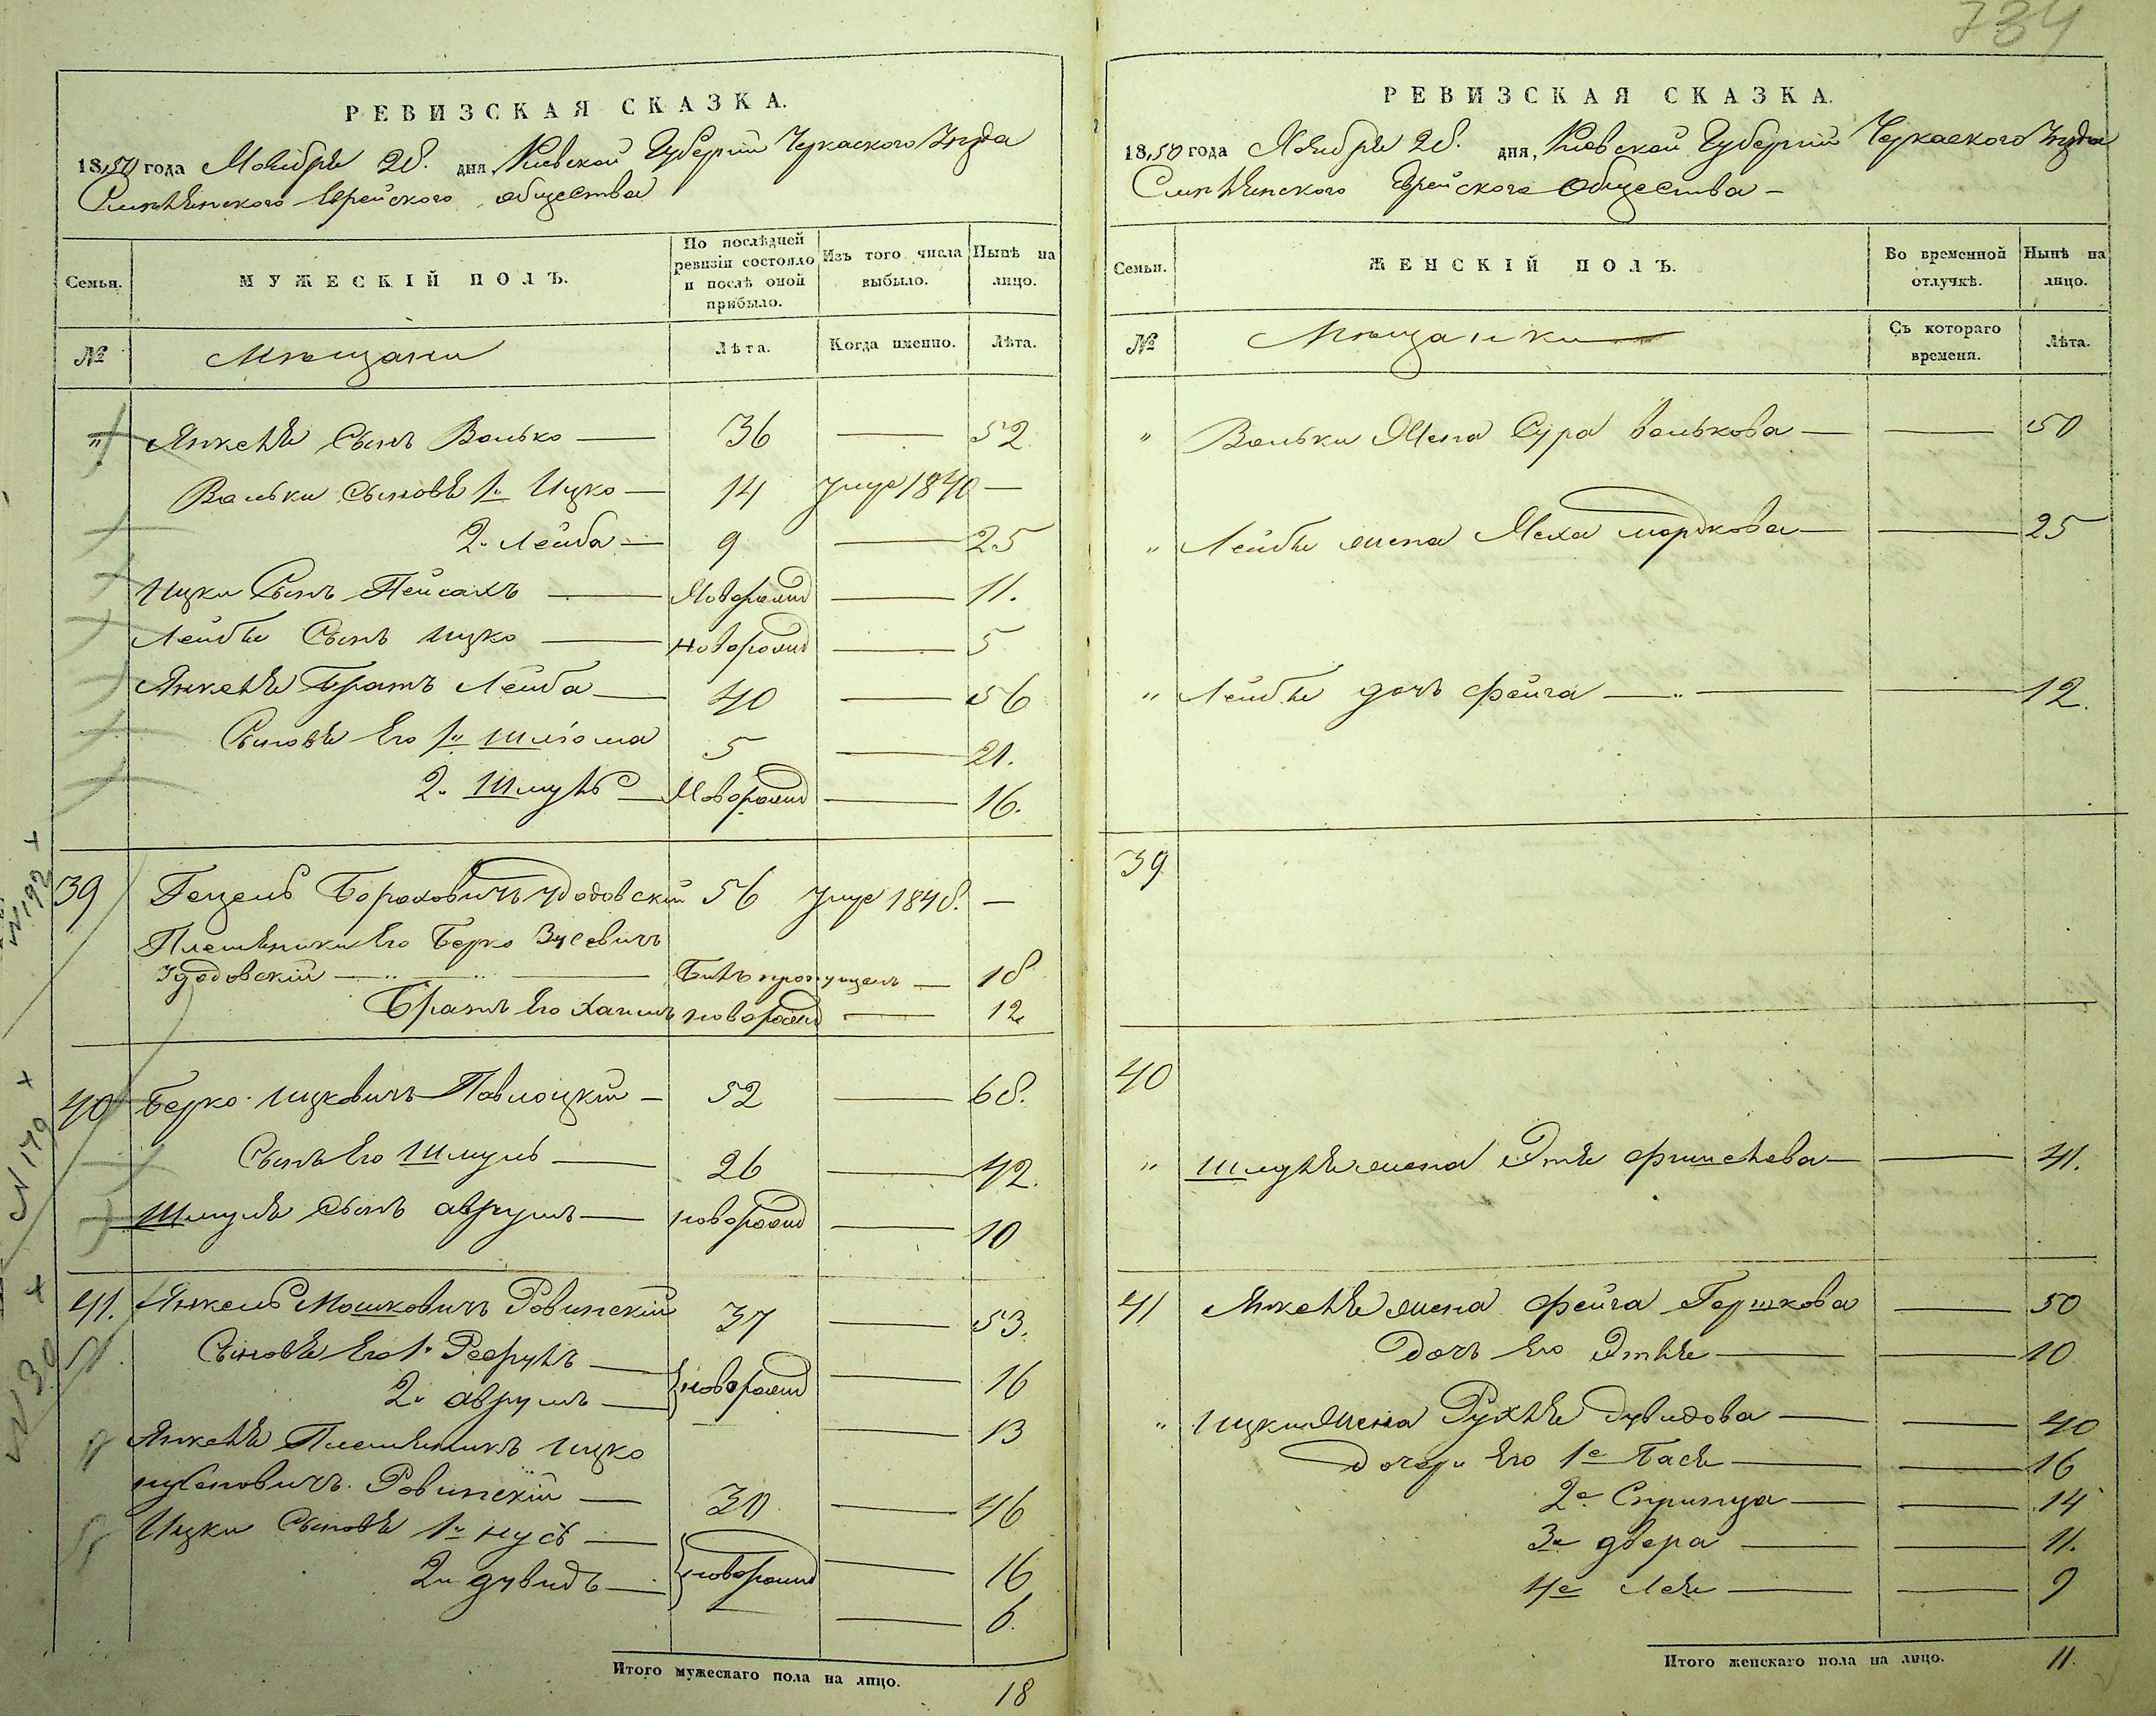 734
РЕВИЗСКАЯ СКАЗКА.
1850 года Ноября 28. дня, Киевской Губернiи Черкаского Уезда
Смѣлянского Еврейского общества
Семьи.
МУЖЕСКIЙ ПОЛЪ.
По послѣдней ревизiи состояло и послѣ оной прибыло.
Изъ того числа выбыло.
Нынѣ на лицо.
№
Мещани
Лѣта.
Когда именно.
Лѣта.
" Янкеля Сынъ Волько — 36 — 52
Вольки Сыновя 1. Ицко — 14 умер 1840 —
2. Лейба — 9 — 25
Ицки Сынъ Пейсахъ — Новорожд — 11.
Лейбы Сынъ Ицко — новорожд — 5
Янкеля Братъ Лейба — 40 — 56
Сыновя Его 1. Шлiома 5 — 21.
2. Шмуль — Новорожд — 16.
39 Гецель Бороховичъ Удодовскiй 56 умер 1848. —
Племяники Его Берко Зусевичъ
Удодовскiй — Былъ пропущенъ — 18
Братъ Его Хаимъ новорожд — 12
40 Берко Ицковичъ Павлоцкiй — 52 — 68.
Сынъ Его Шмуль — 26 — 42.
Шмуля Сынъ аврумъ — новорожд — 10
41. Янкель Мошковичъ Ровинскiй 37 — 53.
Сыновя Его 1. — новорожд — 16
2. аврумъ — 13
Янкеля Племяникъ Ицко
Ровинскiй — 30 — 46
Ицки Сыновя 1. — новорожд — 16
2. дувидъ — 6.
Итого мужескаго пола на лицо. 18
N 192 +
N 179 +
N 30 +
РЕВИЗСКАЯ СКАЗКА.
1850 года Ноября 28. дня, Киевской Губернiи Черкаского Уезда
Смѣлянского Еврейского Общества —
Семьи.
ЖЕНСКIЙ ПОЛЪ.
Во временной отлучкѣ.
Нынѣ на лицо.
№
Мещанки
Съ котораго времени.
Лѣта.
" Вольки Жена Сура Волькова — — 50
" Лейбы жена Неха Мордкова — — 25
" Лейбы дочъ Фейга — — 12.
39
40
" Шмуля жена Этя — — 41.
41 Янкеля жена Фейга Гершкова — 50
Дочъ Его Этля — — 10
" Ицки Жена Рухля Дувидова — — 40
Дочери Его 1е Бася — — 16
2е Спринца — — 14
3е двера — — 11.
4е Лея — — 9
Итого женскаго пола на лицо. 11.